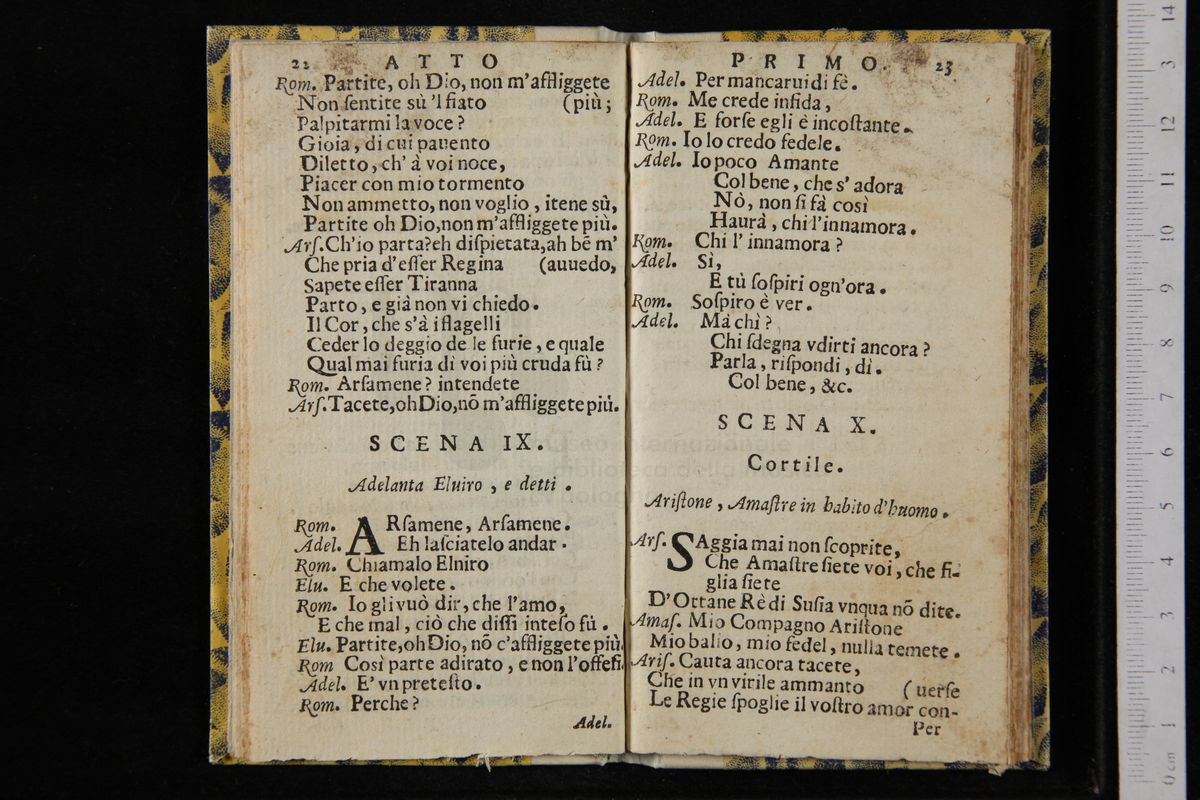 22 ATTO
Rom. Partite, oh Dio, non m'affliggete
Non ſentite sù 'l fiato (più;
Palpitarmi la voce?
Gioia, di cui pauento
Diletto, ch' à voi noce,
Piacer con mio tormento
Non ammetto, non voglio, itene sù,
Partite oh Dio, non m'affliggete più.
Arſ. Ch'io parta? eh diſpietata, ah bẽ m'
Che pria d'eſſer Regina (auuedo,
Sapete eſſer Tiranna
Parto, e già non vi chiedo.
Il Cor, che s'à i flagelli
Ceder lo deggio de le furie, e quale
Qual mai furia di voi più cruda fù?
Rom. Arſamene? intendete
Arſ. Tacete, oh Dio, nõ m'affliggete più.
SCENA IX.
Adelanta Eluiro, e detti.
Rom. ARſamene, Arſamene.
Adel. Eh laſciatelo andar.
Rom. Chiamalo Elniro
Elu. E che volete.
Rom. Io gli vuò dir, che l'amo,
E che mal, ciò che diſſi inteſo fù.
Elu. Partite, oh Dio, nõ c'affliggete più.
Rom Così parte adirato, e non l'offeſi.
Adel. E' vn preteſto.
Rom. Perche?
Adel.
PRIMO. 23
Adel. Per mancarui di fè.
Rom. Me crede infida,
Adel. E forſe egli è incoſtante.
Rom. Io lo credo fedele.
Adel. Io poco Amante
Col bene, che s' adora
Nò, non ſi fà così
Haurà, chi l'innamora.
Rom. Chi l' innamora?
Adel. Sì,
E tù ſoſpiri ogn'ora.
Rom. Soſpiro è ver.
Adel. Mà chì?
Chi ſdegna vdirti ancora?
Parla, riſpondi, dì.
Col bene, &c.
SCENA X.
Cortile.
Ariſtone, Amaſtre in habito d'huomo.
Arſ. SAggia mai non ſcoprite,
Che Amaſtre ſiete voi, che fi-
glia ſiete
D'Ottane Rè di Suſia vnqua nõ dite.
Amaſ. Mio Compagno Ariſtone
Mio balio, mio fedel, nulla temete.
Ariſ. Cauta ancora tacete,
Che in vn virile ammanto (uerſe
Le Regie ſpoglie il voſtro amor con-
Per